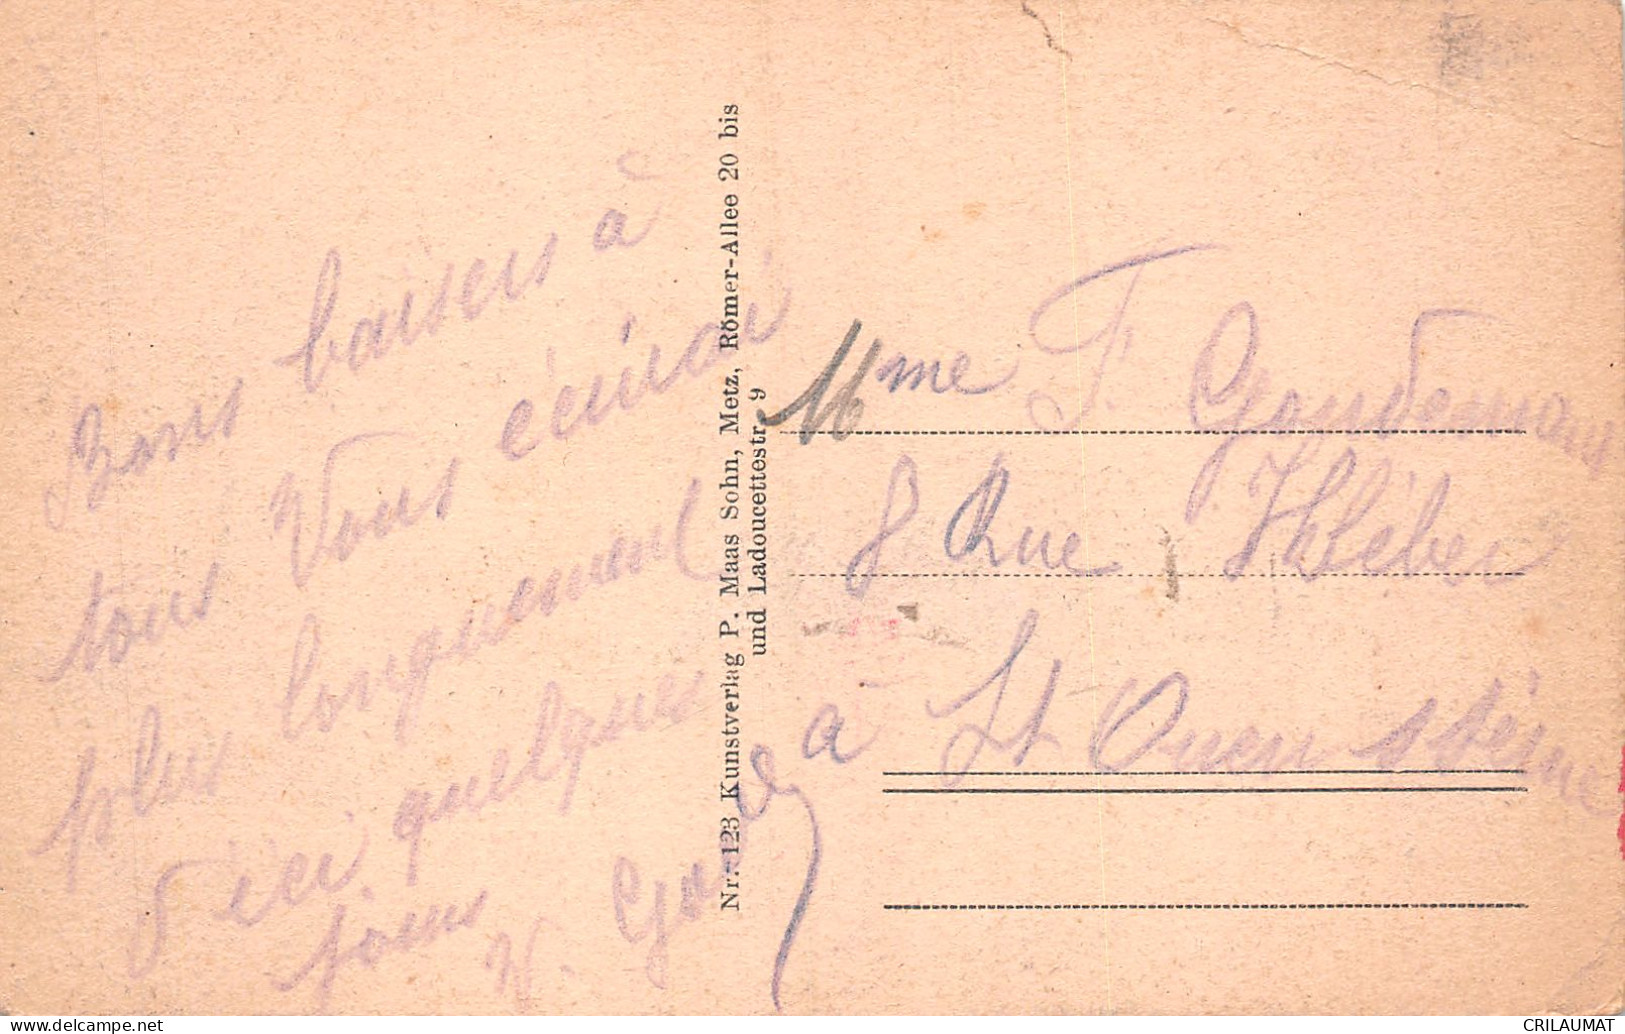 Bons baisers à
tous Vous écrirai
plus longuement
d'ici quelques
jours
Nr. 123 Kunstverlag P. Maas Sohn, Metz, Römer-Allee 20 bis
und Ladoucettestr. 9
Mme F.
8 Rue Kléber
à St Ouen s Seine
CRILAUMAT